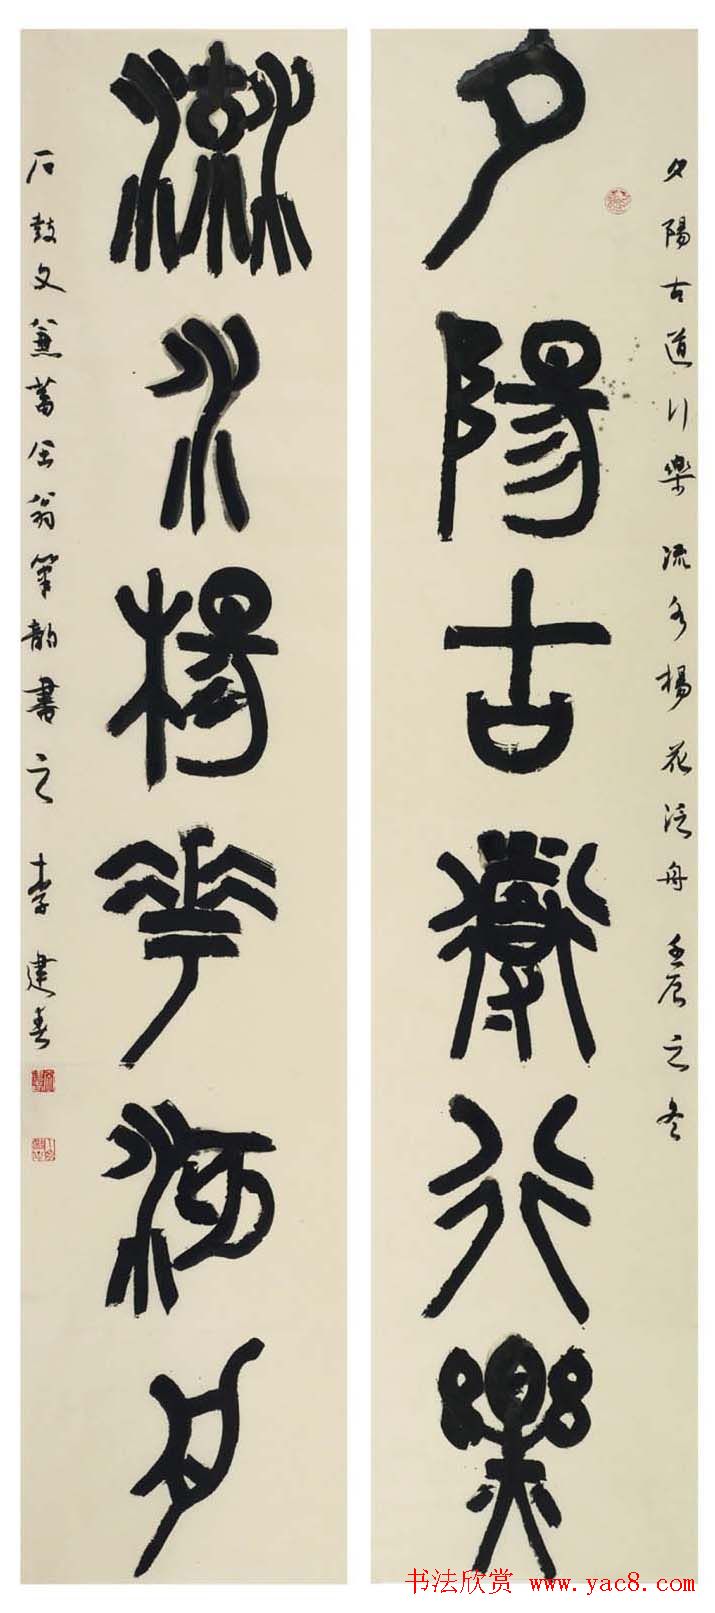 夕陽古道行樂
流水楊花泛舟
夕陽古道行樂 流水楊花泛舟 壬辰之冬
石鼓文兼蓄缶翁筆韵書之 李建春
书法欣赏 www.yac8.com